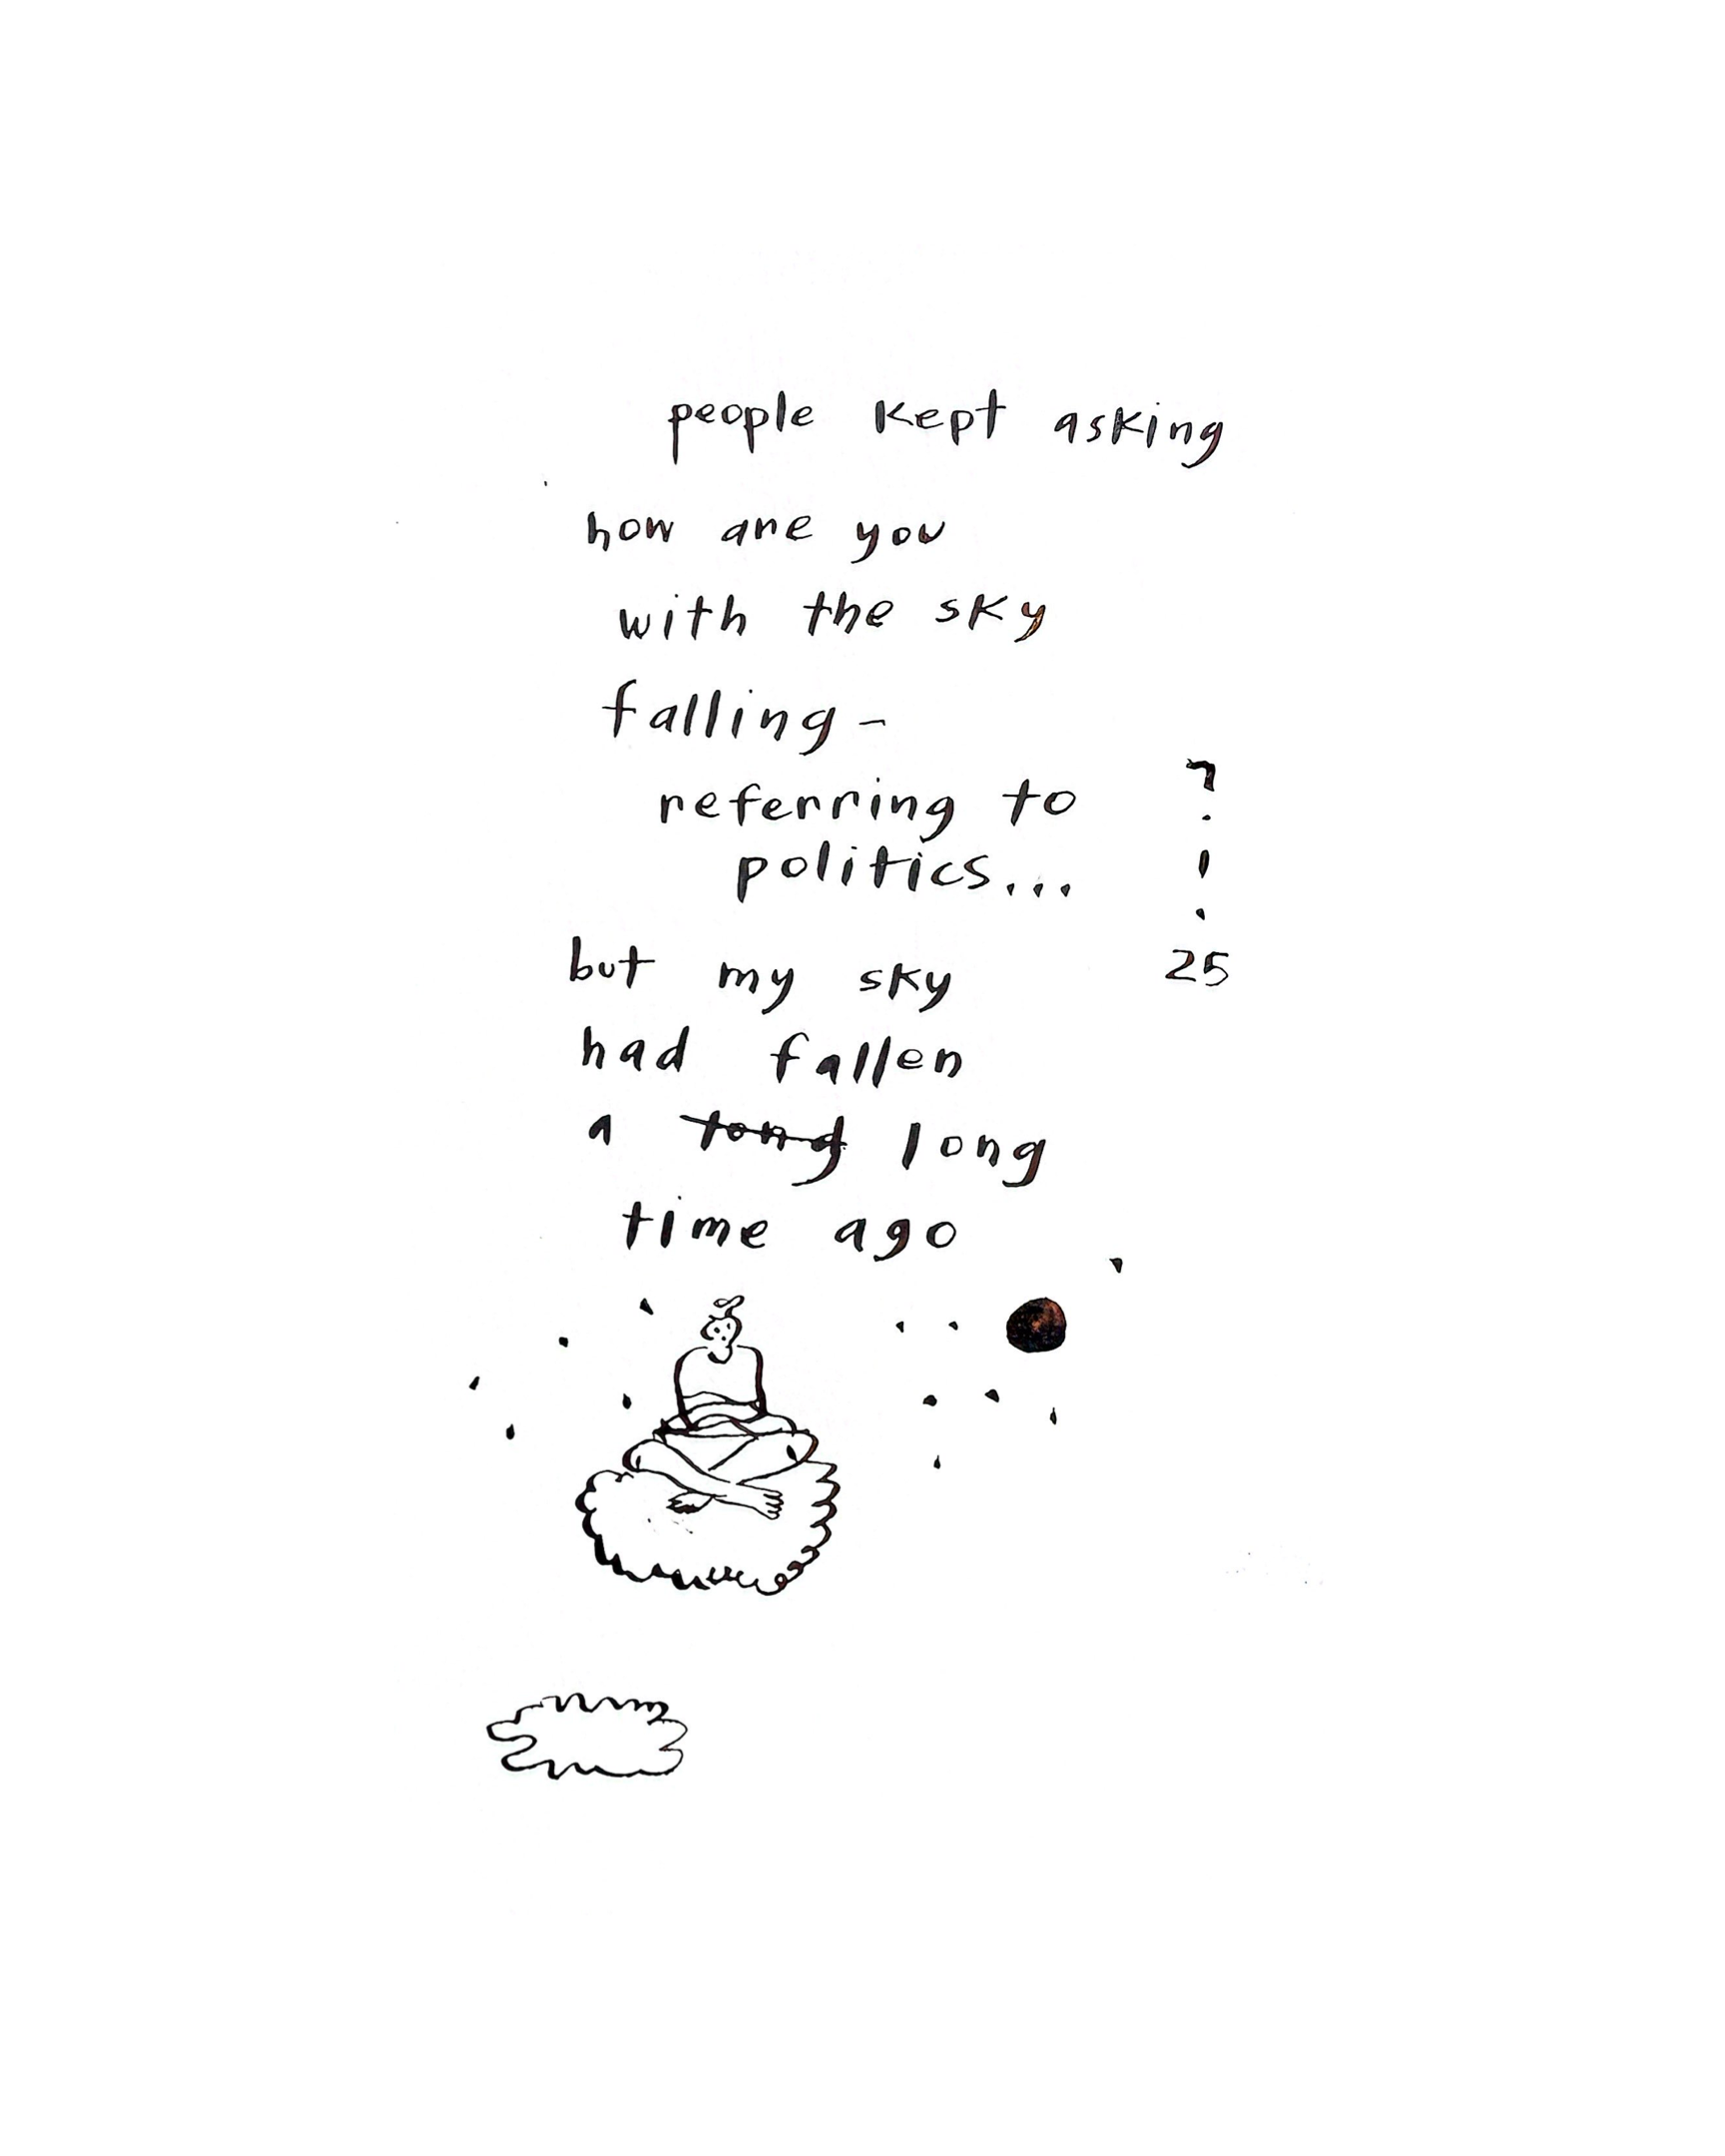 people kept asking
how are you
with the sky
falling-
referring to
politics...
but my sky
had fallen
a tong long
time ago
7
.
1
.
25